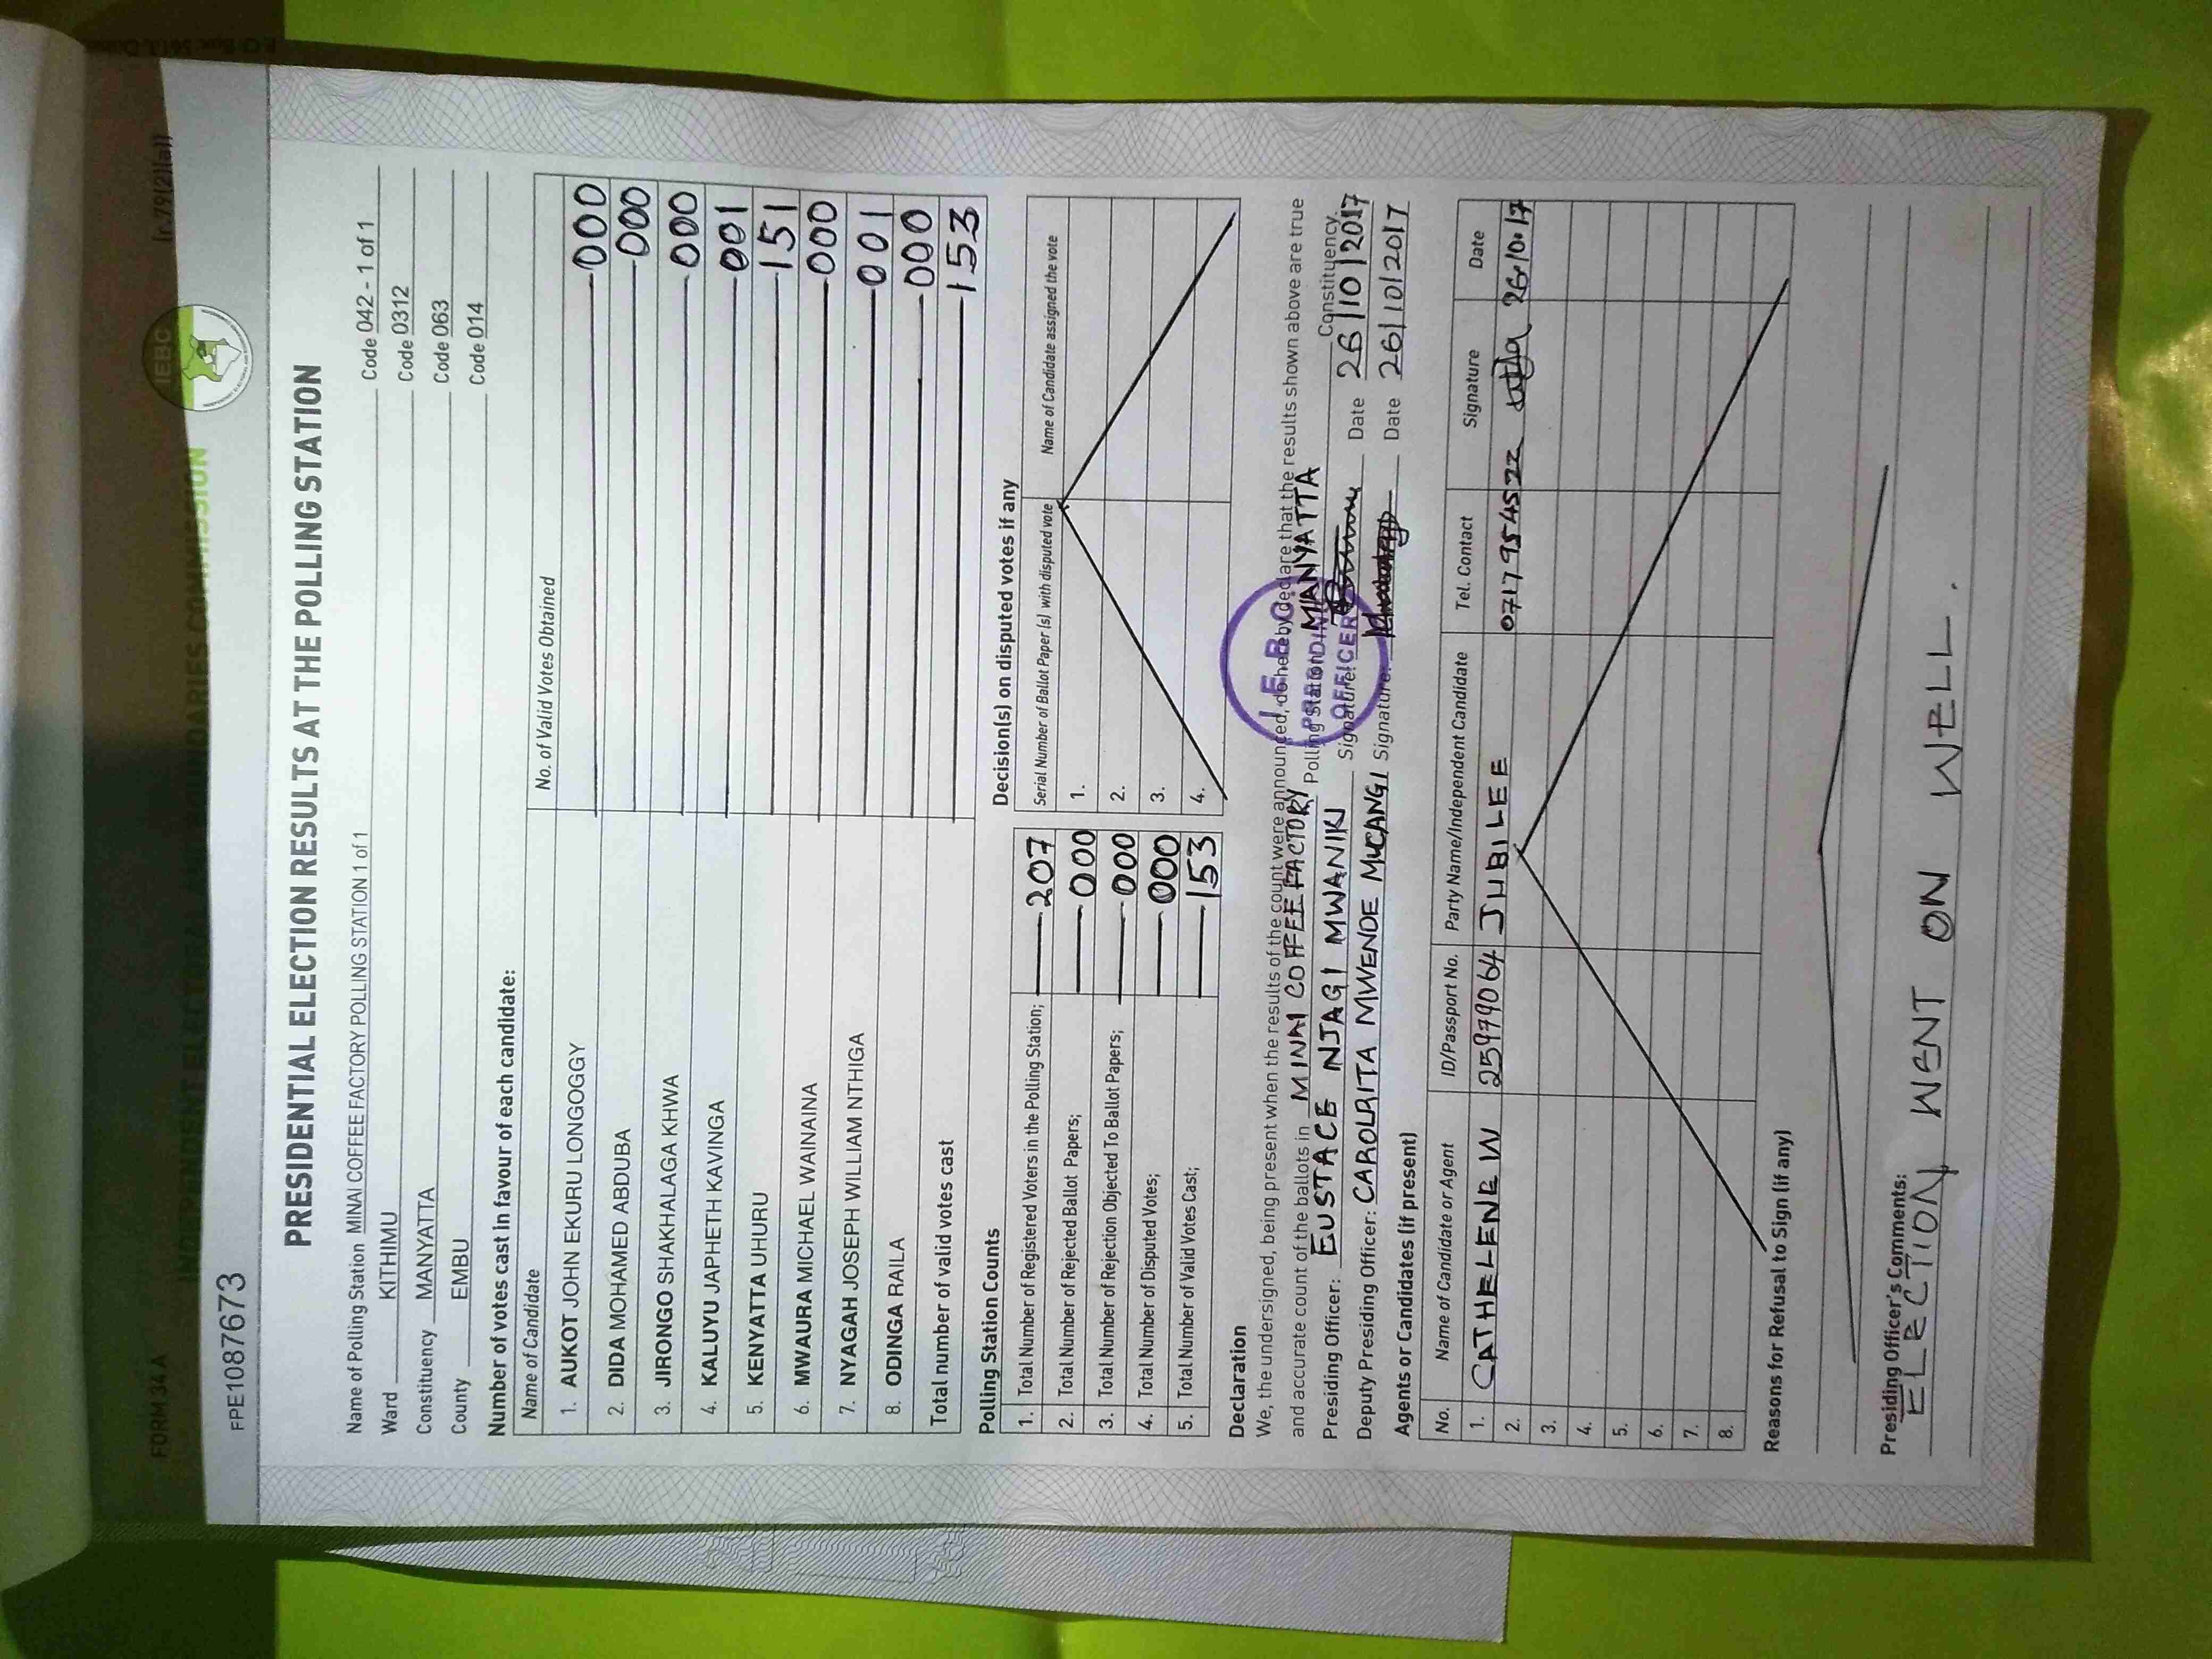 FORM 34A (r.79(2)(a))
INDEPENDENT ELECTORAL AND BOUNDARIES COMMISSION
IEBC
FPE1087673
PRESIDENTIAL ELECTION RESULTS AT THE POLLING STATION
Name of Polling Station MINAI COFFEE FACTORY POLLING STATION 1 of 1 Code 042 - 1 of 1
Ward KITHIMU Code 0312
Constituency MANYATTA Code 063
County EMBU Code 014
Number of votes cast in favour of each candidate:
Name of Candidate No. of Valid Votes Obtained
1. AUKOT JOHN EKURU LONGOGGY 000
2. DIDA MOHAMED ABDUBA 000
3. JIRONGO SHAKHALAGA KHWA 000
4. KALUYU JAPHETH KAVINGA 001
5. KENYATTA UHURU 151
6. MWAURA MICHAEL WAINAINA 000
7. NYAGAH JOSEPH WILLIAM NTHIGA 001
8. ODINGA RAILA 000
Total number of valid votes cast 153
Polling Station Counts
1. Total Number of Registered Voters in the Polling Station; 207
2. Total Number of Rejected Ballot Papers; 000
3. Total Number of Rejection Objected To Ballot Papers; 000
4. Total Number of Disputed Votes; 000
5. Total Number of Valid Votes Cast; 153
Decision(s) on disputed votes if any
Serial Number of Ballot Paper (s) with disputed vote Name of Candidate assigned the vote
1.
2.
3.
4.
Declaration
We, the undersigned, being present when the results of the count were announced, do hereby declare that the results shown above are true
and accurate count of the ballots in MINAI COFFEE FACTORY Polling Station MANYATTA Constituency.
Presiding Officer: EUSTACE NJAGI MWANIKI Signature: Date 26/10/2017
Deputy Presiding Officer: CAROLRITA MWENDE MUCANGI Signature: Date 26/10/2017
I.E.B.C.
PRESIDING
OFFICER
Agents or Candidates (if present)
No. Name of Candidate or Agent ID/Passport No. Party Name/Independent Candidate Tel. Contact Signature Date
1. CATHELENE W 25979064 JUBILEE 0717954522 26/10/17
2.
3.
4.
5.
6.
7.
8.
Reasons for Refusal to Sign (if any)
Presiding Officer's Comments:
ELECTION WENT ON WELL.